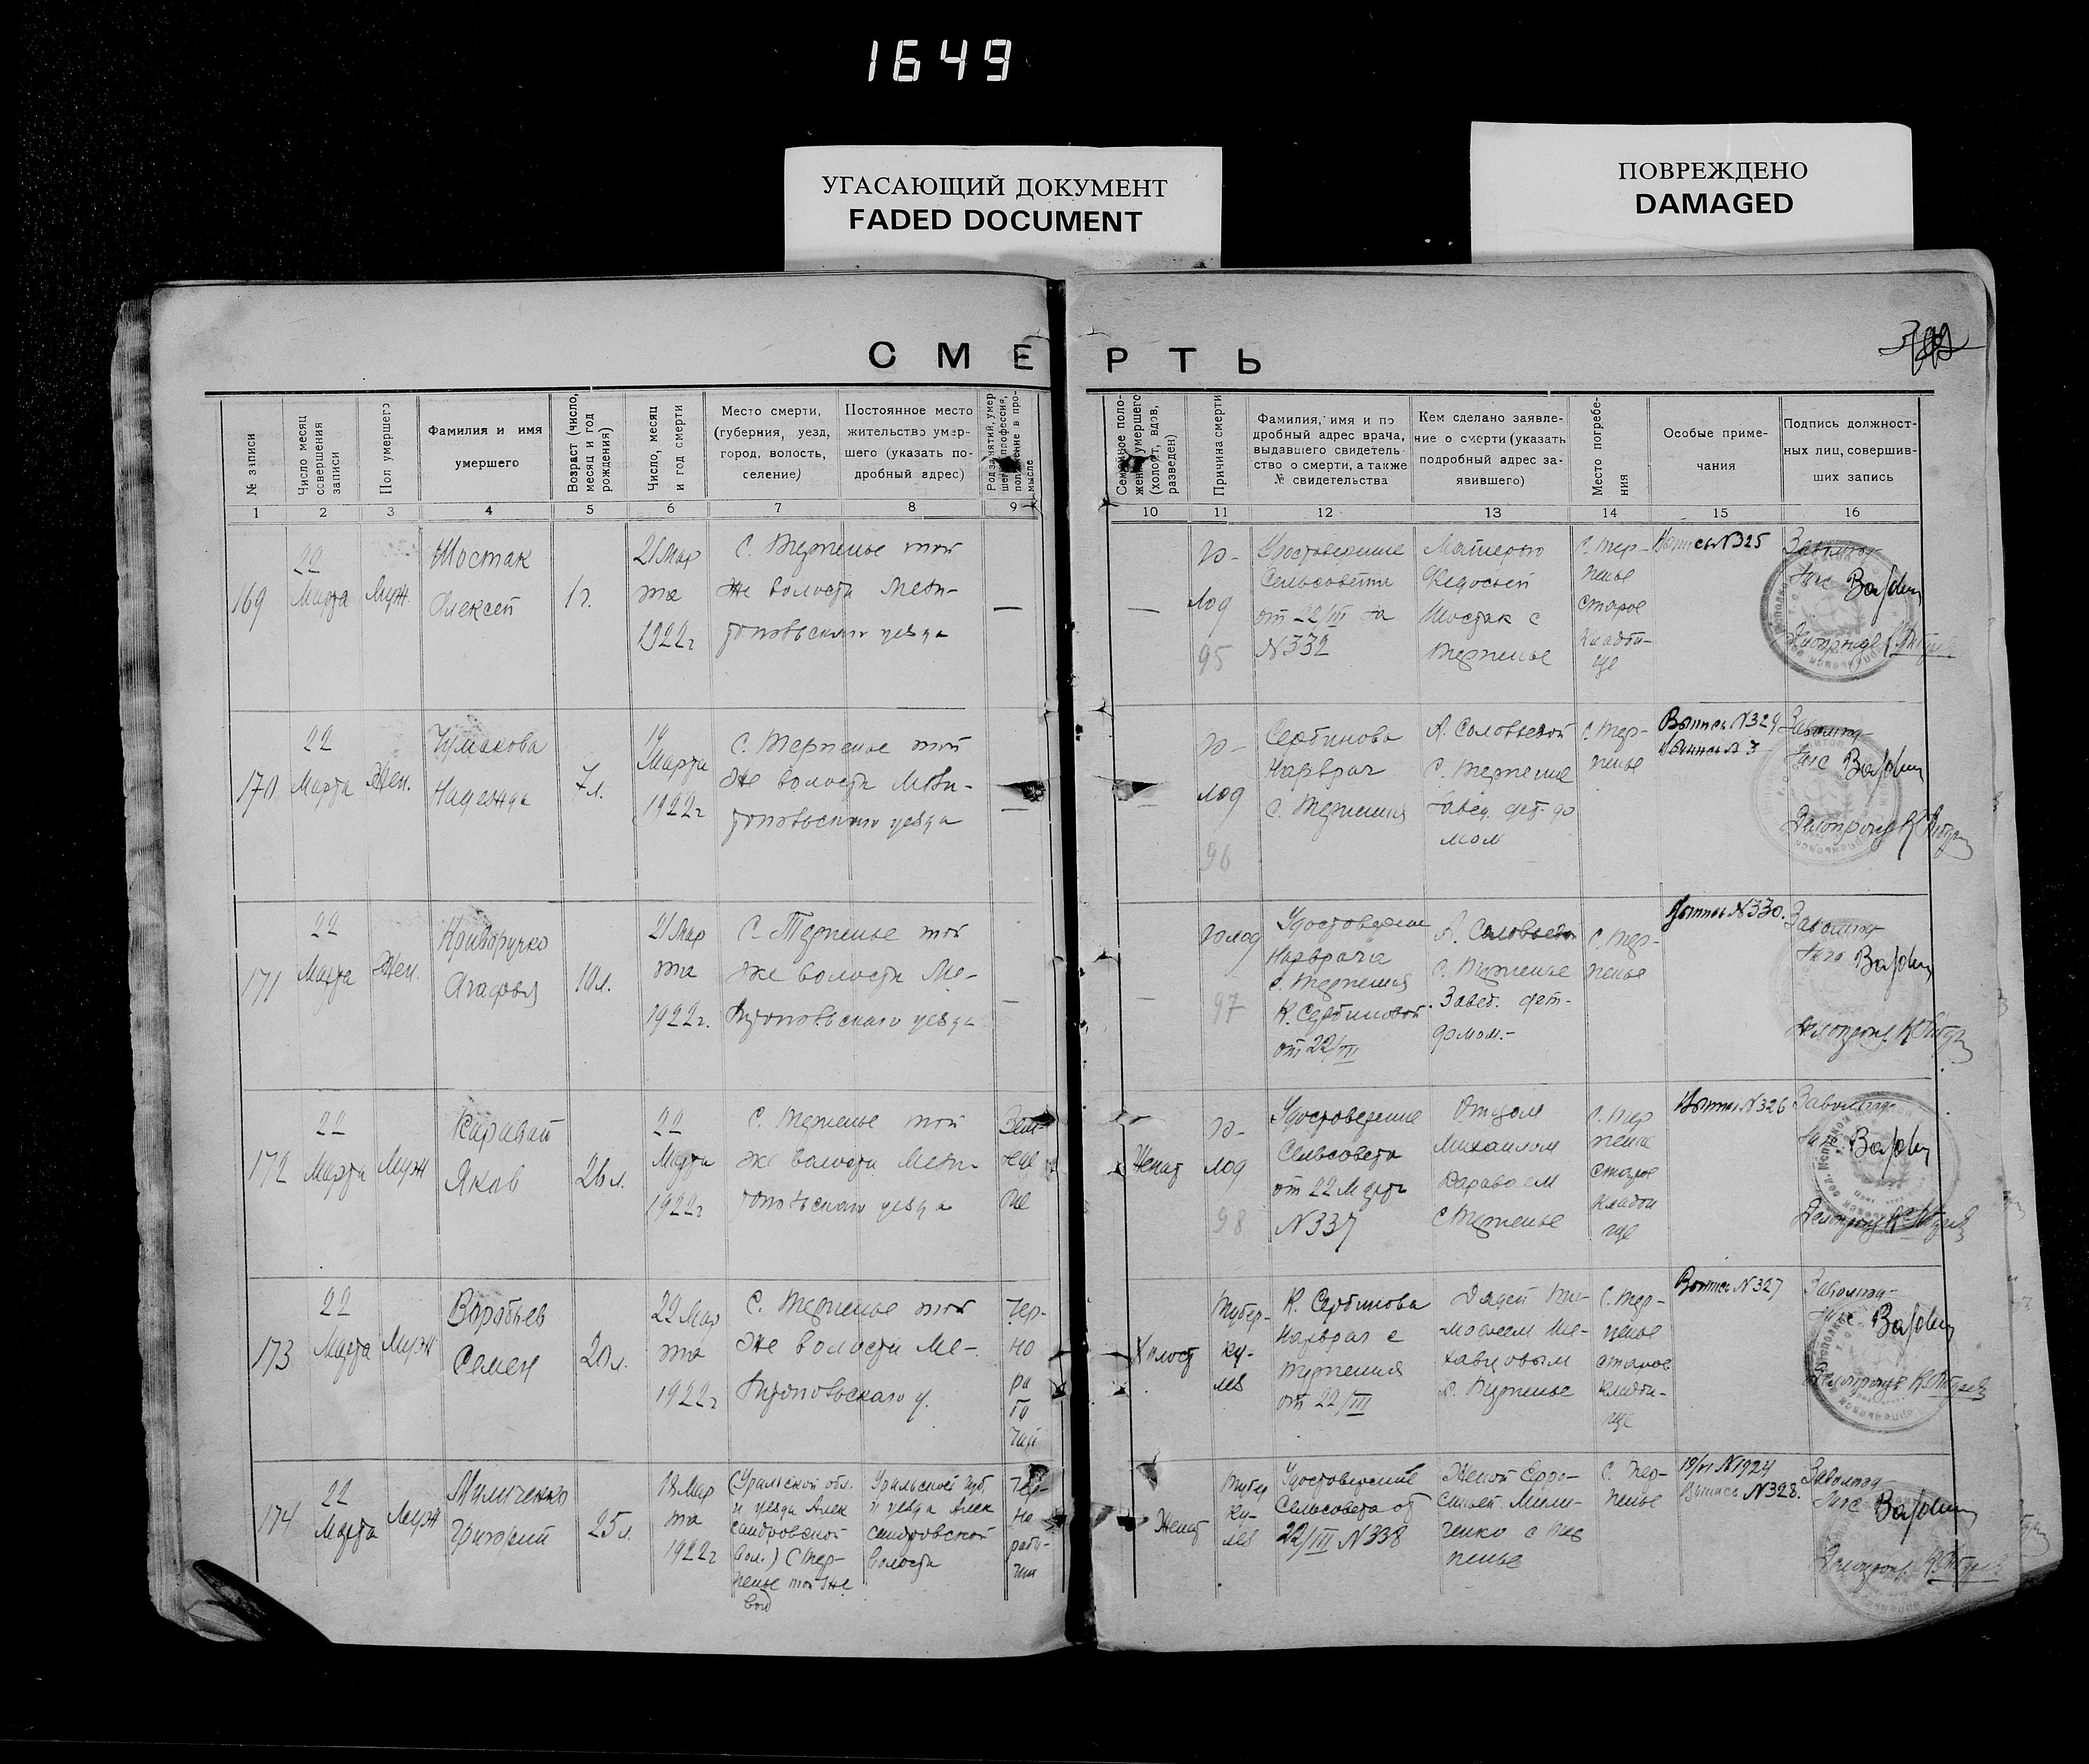 1649
УГАСАЮЩИЙ ДОКУМЕНТ
FADED DOCUMENT
ПОВРЕЖДЕНО
DAMAGED
СМЕРТЬ
№ записи
Число месяц совершения записи
Пол умершего
Фамилия и имя
умершего
Возраст (число, месяц и год рождения)
Число, месяц и год смерти
Место смерти,
(губерния, уезд,
город, волость,
селение)
Постоянное место
жительство умер-
шего (указать по-
дробный адрес)
Род занятий, умер
шего, профессия,
положение в про-
мысле
Семейное поло-
жение умершего
(холост, вдов,
разведен)
Причина смерти
Фамилия, имя и по
дробный адрес врача,
выдавшего свидетель-
ство о смерти, а также
№ свидетельства
Кем сделано заявле-
ние о смерти (указать
подробный адрес за-
явившего)
Место погребе-
ния
Особые приме-
чания
Подпись должност-
ных лиц, совершив-
ших запись
1 2 3 4 5 6 7 8 9 10 11 12 13 14 15 16
169
22
Марта
Муж.
Шостак
Алексей
1 г.
21 Мар
та
1922 г
С. Терпенье той
же волости Мели-
топольскаго уезда
—
—
Го-
лод
95
Удостоверение
Сельсовета
от 22/III за
N 332
Матерью
Федосьей
Шостак с
Терпенье
С. Тер-
пенье
старое
кладби-
ще
Выпись N 325
170
22
Марта
Жен.
Чумакова
Надежда
7 л.
19
Марта
1922 г
С. Терпенье той
же волости Мели-
топольскаго уезда
—
—
Го-
лод
96
Сербинова
Нарврач
с. Терпения
А. Соловьевой
с. Терпение
Завед. дет. до
мом
С. Тер-
пенье
Выпись N 329
171
22
Марта
Жен.
Криворучко
Агафья
10 л.
21 Мар
та
1922 г.
С. Терпенье той
же волости Ме-
литопольскаго уезда
—
—
Голод
97
Удостоверение
Нарврача
с. Терпения
К. Сербиновой
от 22/III
А. Соловьевой
с. Терпенье
Завед. дет-
домом.-
С. Тер-
пенье
Выпись N 330.
172
22
Марта
Муж
Каравай
Яков
26 л.
22
Марта
1922 г
С. Терпенье той
же волости Мели-
топольскаго уезда
Женат
Го-
лод
98
Удостоверение
Сельсовета
от 22 Марта
N 337
Отцом
Михаилом
Караваем
с Терпенье
С. Тер
пенье
старое
кладби
ще
Выпись N 326
173
22
Марта
Муж
Воробьев
Семен
20 л.
22 Мар
та
1922 г
С. Терпенье той
же волости Ме-
литопольскаго у.
Чер-
но
ра
бо
чий
Холост
Тубер-
ку-
лез
К. Сербинова
Нарврач с
Терпения
от 22/III
Дядей Ти-
мофеем
с. Терпенье
С. Тер-
пенье
старое
кладби-
ще
Выпись N 327
174
22
Марта
Муж
Миличенко
Григорий
25 л.
18 Мар
та
1922 г
(Уральской обл.
и уезда Алек
сандровской
вол.) С Тер-
пенье той же
вол
Уральской губ,
и уезда Алек
сандровской
волости
Чер-
но
рабо-
чий
Женат
Тубер
ку-
лез
Удостоверение
Сельсовета от
22/III N 338
Женой Евро-
синьей Мили-
ченко с Тер
пенье
С. Тер-
пенье
Выпись N 328.